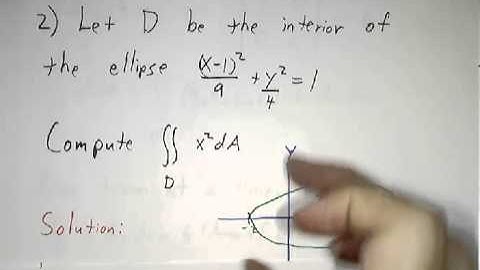 2) Let D be the interior of
the ellipse (x-1)²/9 + y²/4 = 1
Compute ∬_D x² dA
y
-2
Solution: